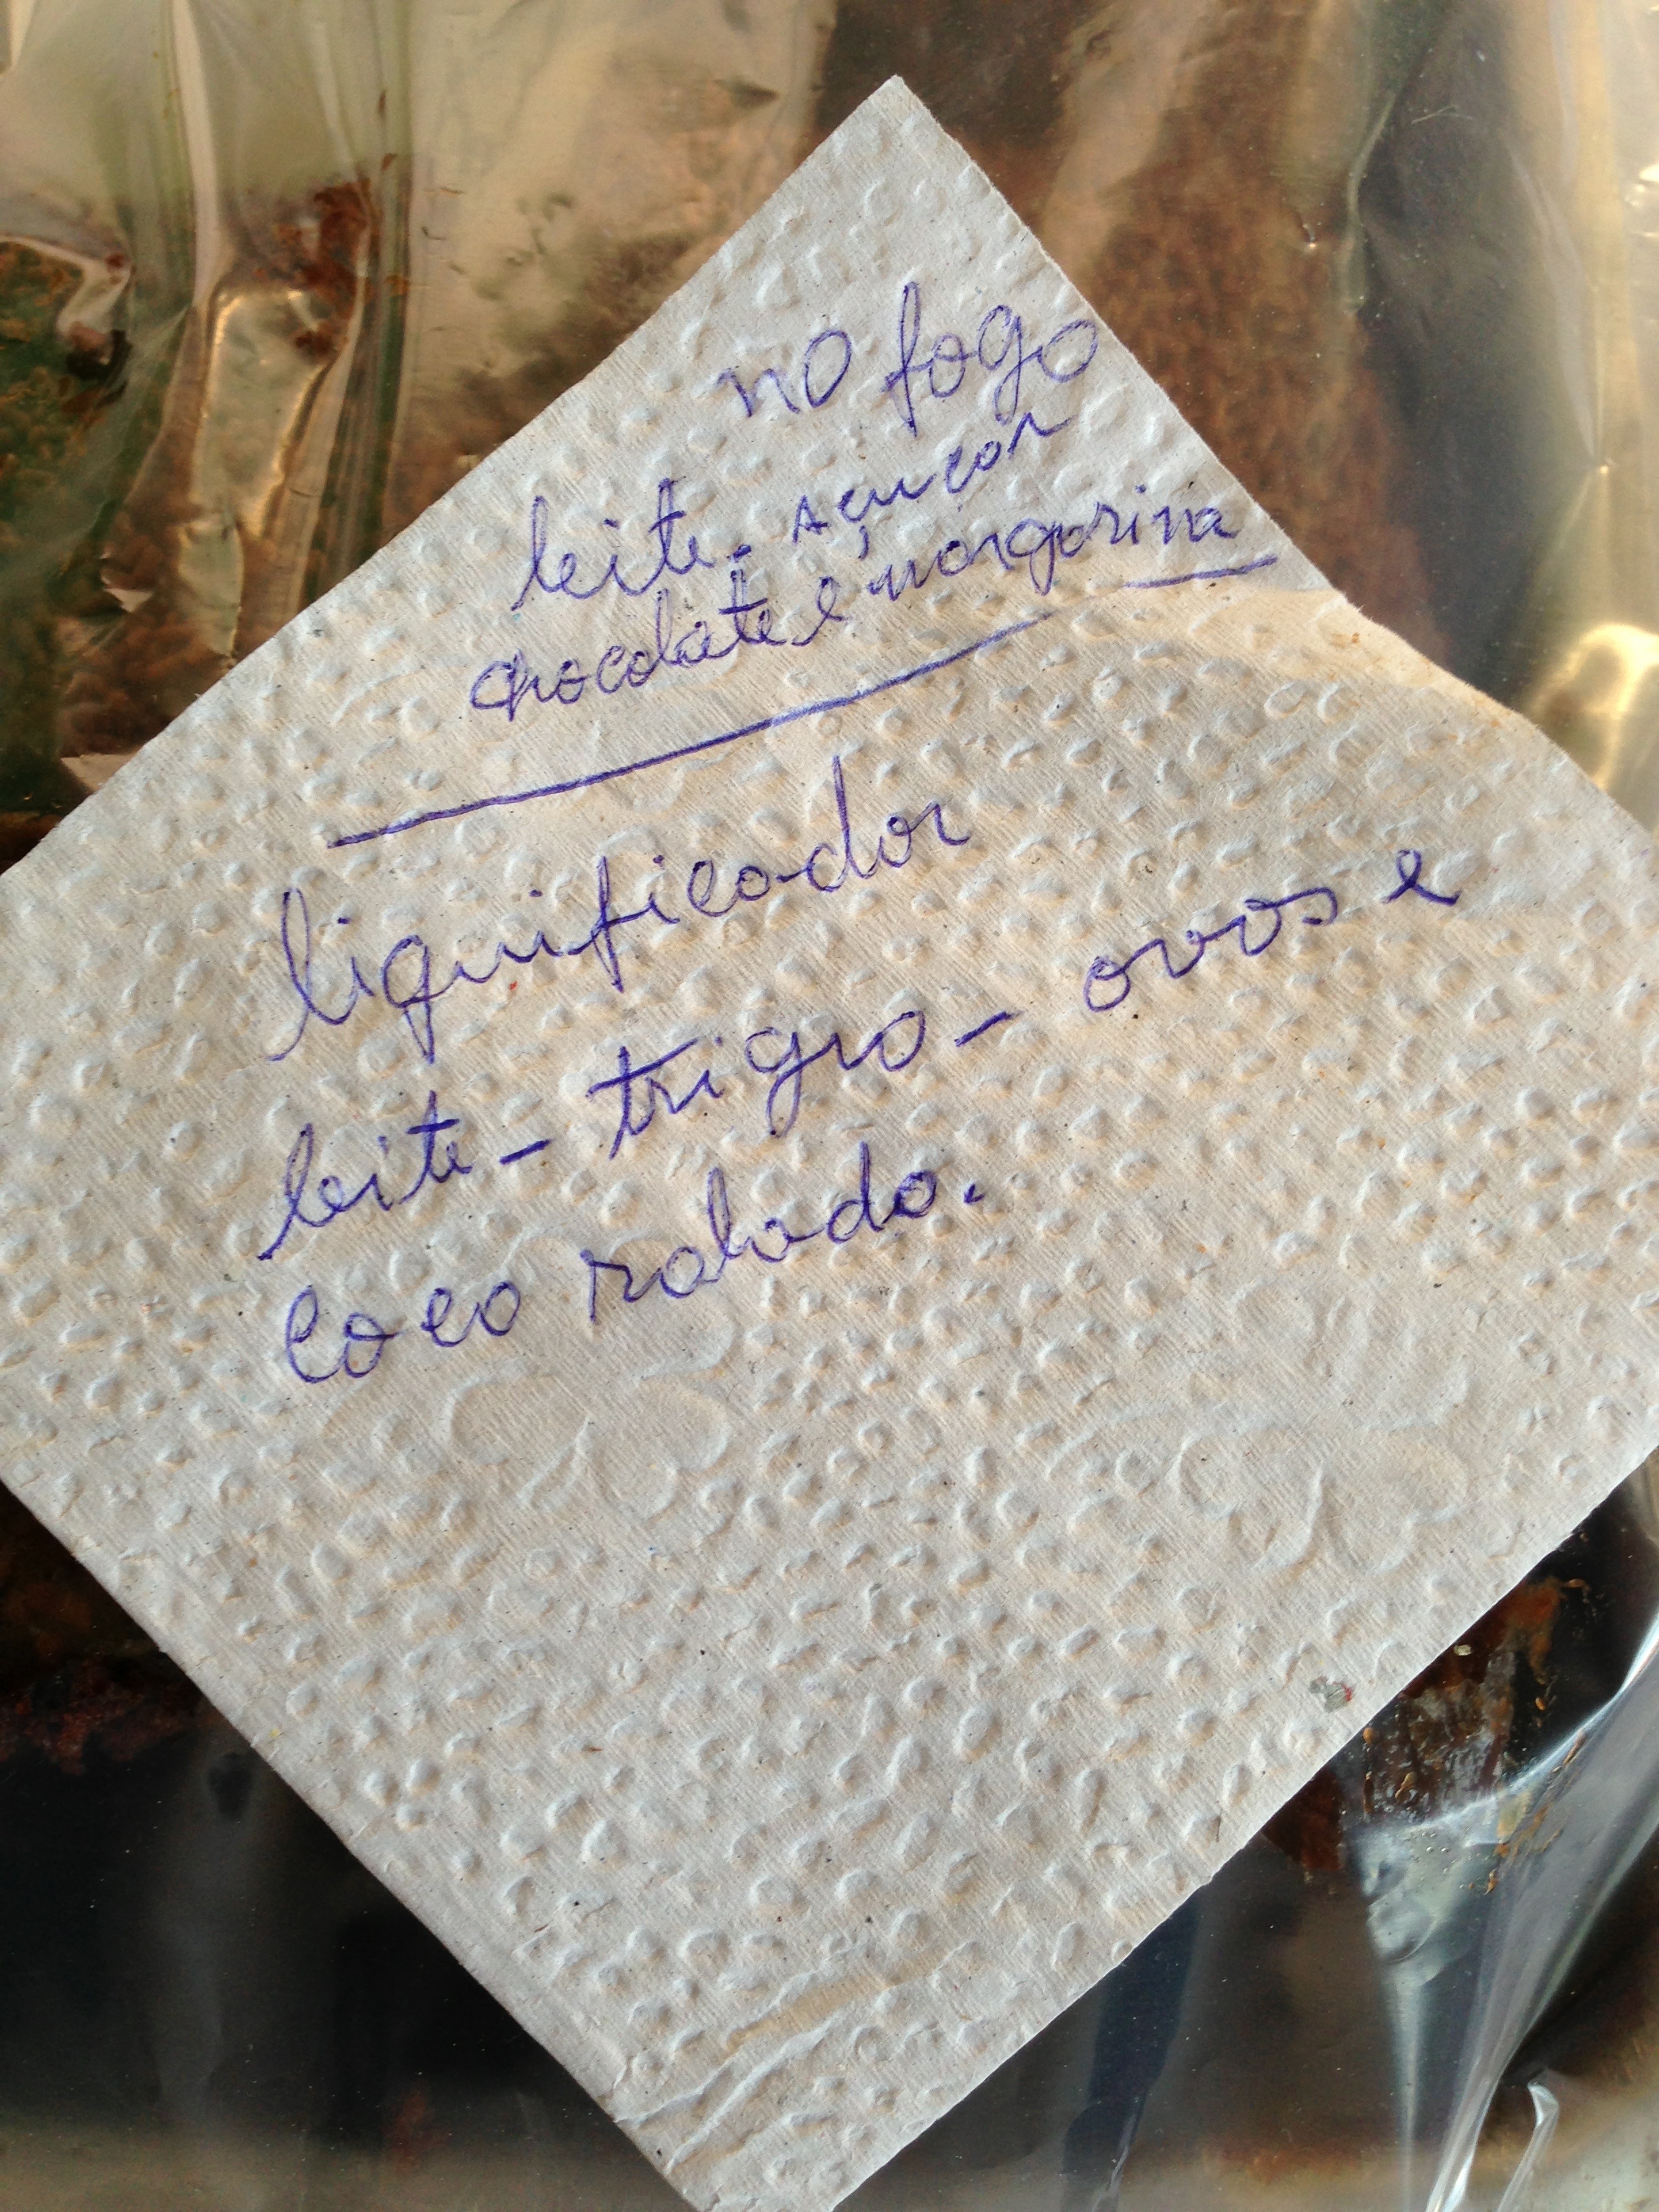 no fogo
leite. açucar
chocolate e margarina
liquificador
leite - trigro - ovos e
coco ralado.